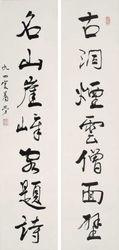 古洞煙雲僧面壁
名山崖嶂客題詩